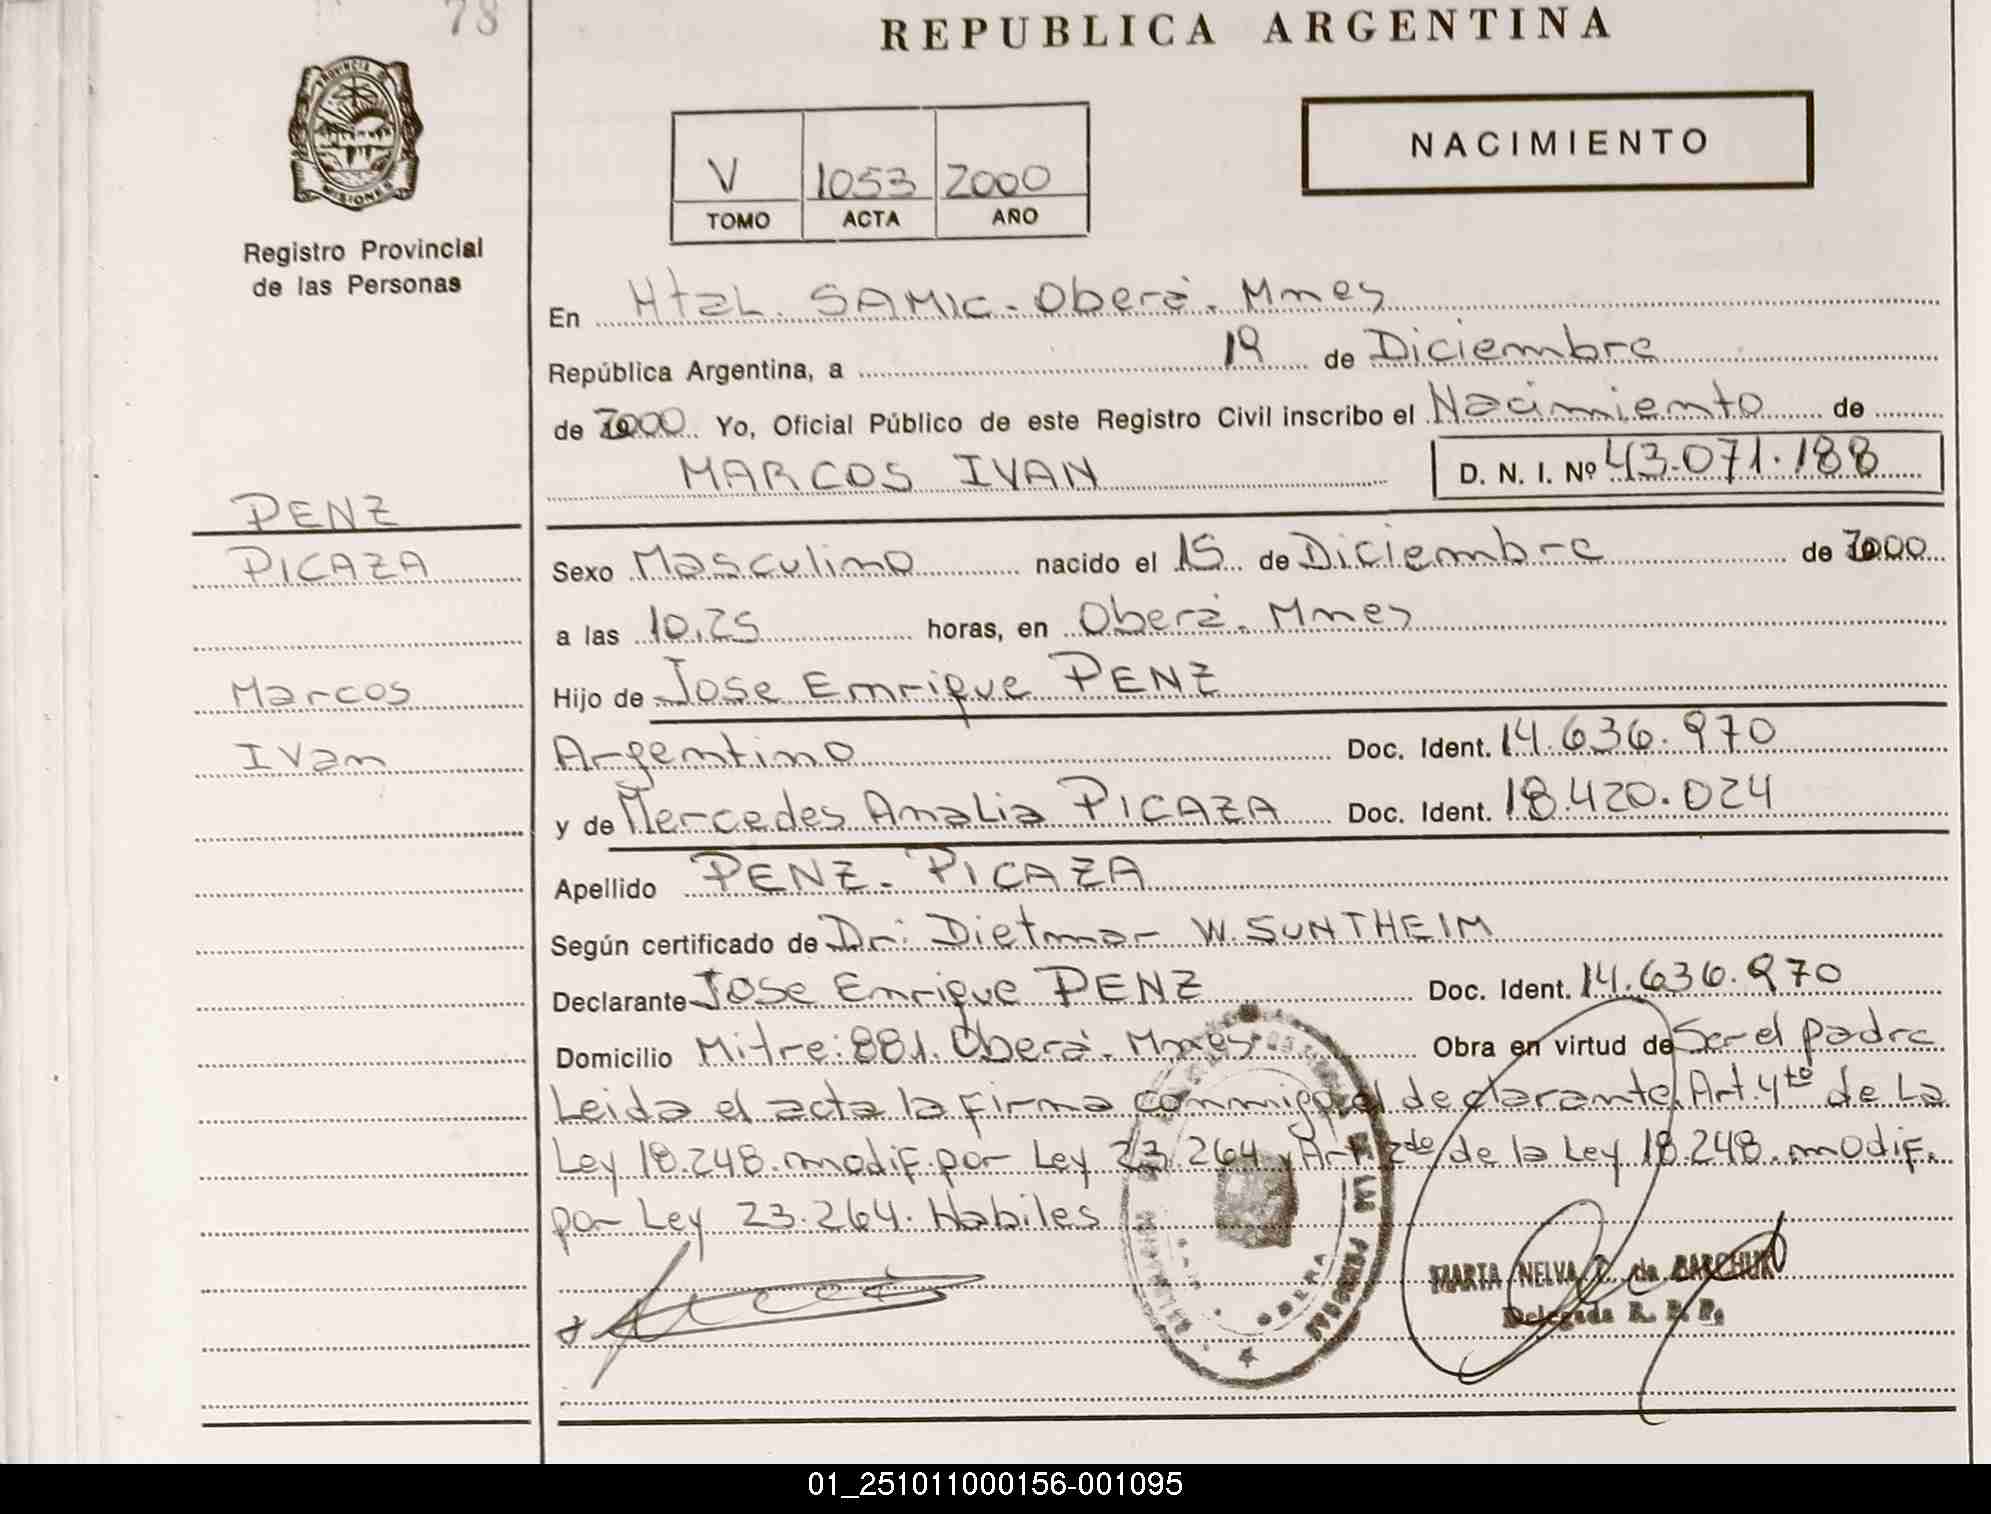 78
REPUBLICA ARGENTINA
PROVINCIA DE
MISIONES
Registro Provincial
de las Personas
NACIMIENTO
V 1053 2000
TOMO ACTA AÑO
En Htal. SAMIC. Oberá. Mnes
República Argentina, a 19 de Diciembre
de 2000 Yo, Oficial Público de este Registro Civil inscribo el Nacimiento de
MARCOS IVAN D. N. I. Nº 43.071.188
PENZ
PICAZA
Marcos
Ivan
Sexo Masculino nacido el 15 de Diciembre de 2000
a las 10,25 horas, en Oberá. Mnes
Hijo de Jose Enrique PENZ
Argentino Doc. Ident. 14.636.970
y de Mercedes Analia PICAZA Doc. Ident. 18.420.024
Apellido PENZ. PICAZA
Según certificado de Dr: Dietmar W. SUNTHEIM
Declarante Jose Enrique PENZ Doc. Ident. 14.636.970
Domicilio Mitre: 881. Oberá. Mnes Obra en virtud de Ser el padre
Leida el acta la firma conmigo el declarante. Art. 4to de La
Ley 18.248. modif. por Ley 23.264 y Art. 2do de la Ley 18.248. modif.
por Ley 23.264. Habiles
MARTA NELVA de
Delegada R. P. P.
OBERA
01_251011000156-001095